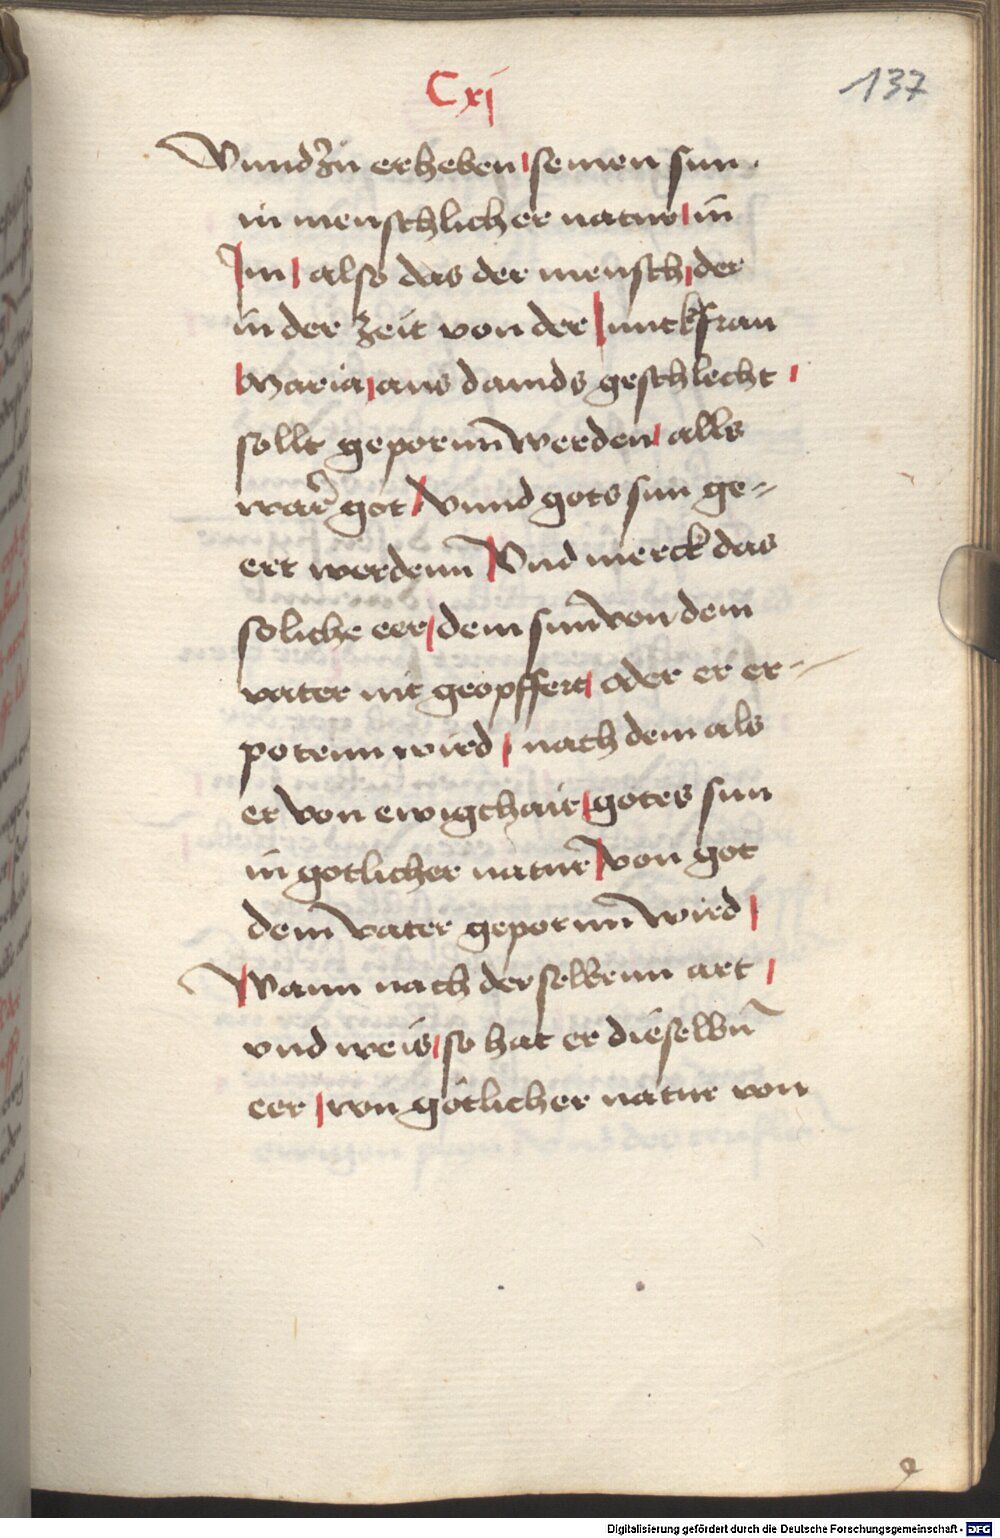 Cxj
137
Vnnd zu erheben seinen sun.
in menschlicher natur in
Im also das der mensch der
in der zeit von der Junckfrau
Maria aus dauids geschlecht
sollt gepornn̄ werden alls
war̄ got vnnd gots sun ge-
ert werdenn Vnd merck das
soliche eer dem sun̄ von dem
vater nit geopffert oder er er-
potenn wird nach dem als
er von ewigchait gotes sun
in gotlicher natur̄ von got
dem vater gepornn̄ wird
Wann nach der selbenn art
vnd weis so hat er dieselbn̄
eer von götlicher natur von
Digitalisierung gefördert durch die Deutsche Forschungsgemeinschaft - DFG